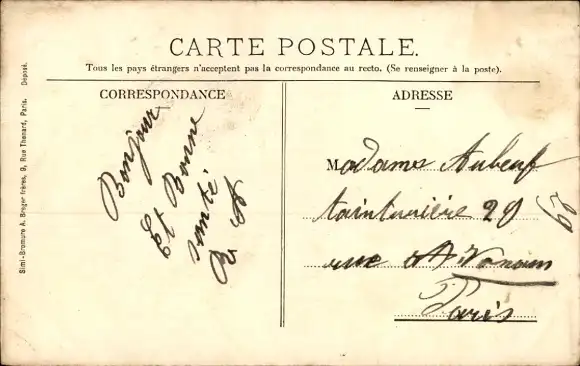 CARTE POSTALE.
Tous les pays étrangers n'acceptent pas la correspondance au recto. (Se renseigner à la poste).
CORRESPONDANCE
ADRESSE
Bonjour
Et Bonne
santé.
Madame Aubeuf
tainturière 29
rue
Paris
Simi-Bromure A. Breger frères, 9, Rue Thenard, Paris. Déposé.